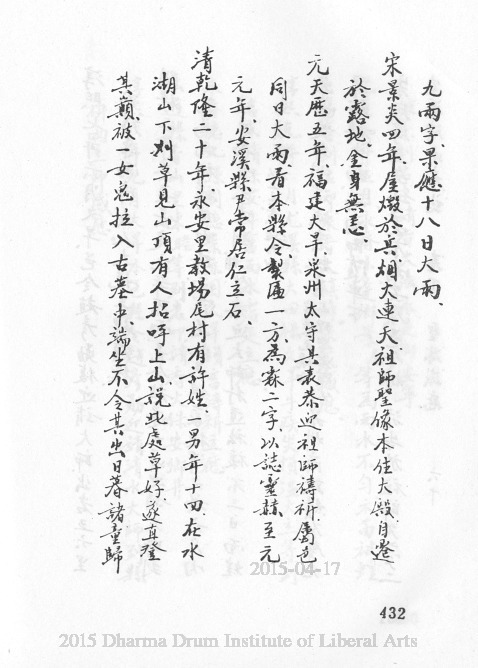 九兩字、果應十八日大雨、
宋景炎四年屋燬於兵烟大連天、祖師聖像本住大殿自遷
於露地、金身無恙、
元天歷五年、福建大旱、泉州太守具表恭迎祖師禱祈、屬邑
同日大雨、着本縣令、製匾一方、為霖二字、以誌靈赫、至元
元年、安溪縣尹常居仁立石、
清乾隆二十年、永安里教場尾村有許姓、一男年十四、在水
湖山下刈草見山頂有人招呼上山、說此處草好、遂直登
其巔、被一女鬼拉入古墓中、端坐不令其出、日暮諸童歸
432
2015-04-17
2015 Dharma Drum Institute of Liberal Arts